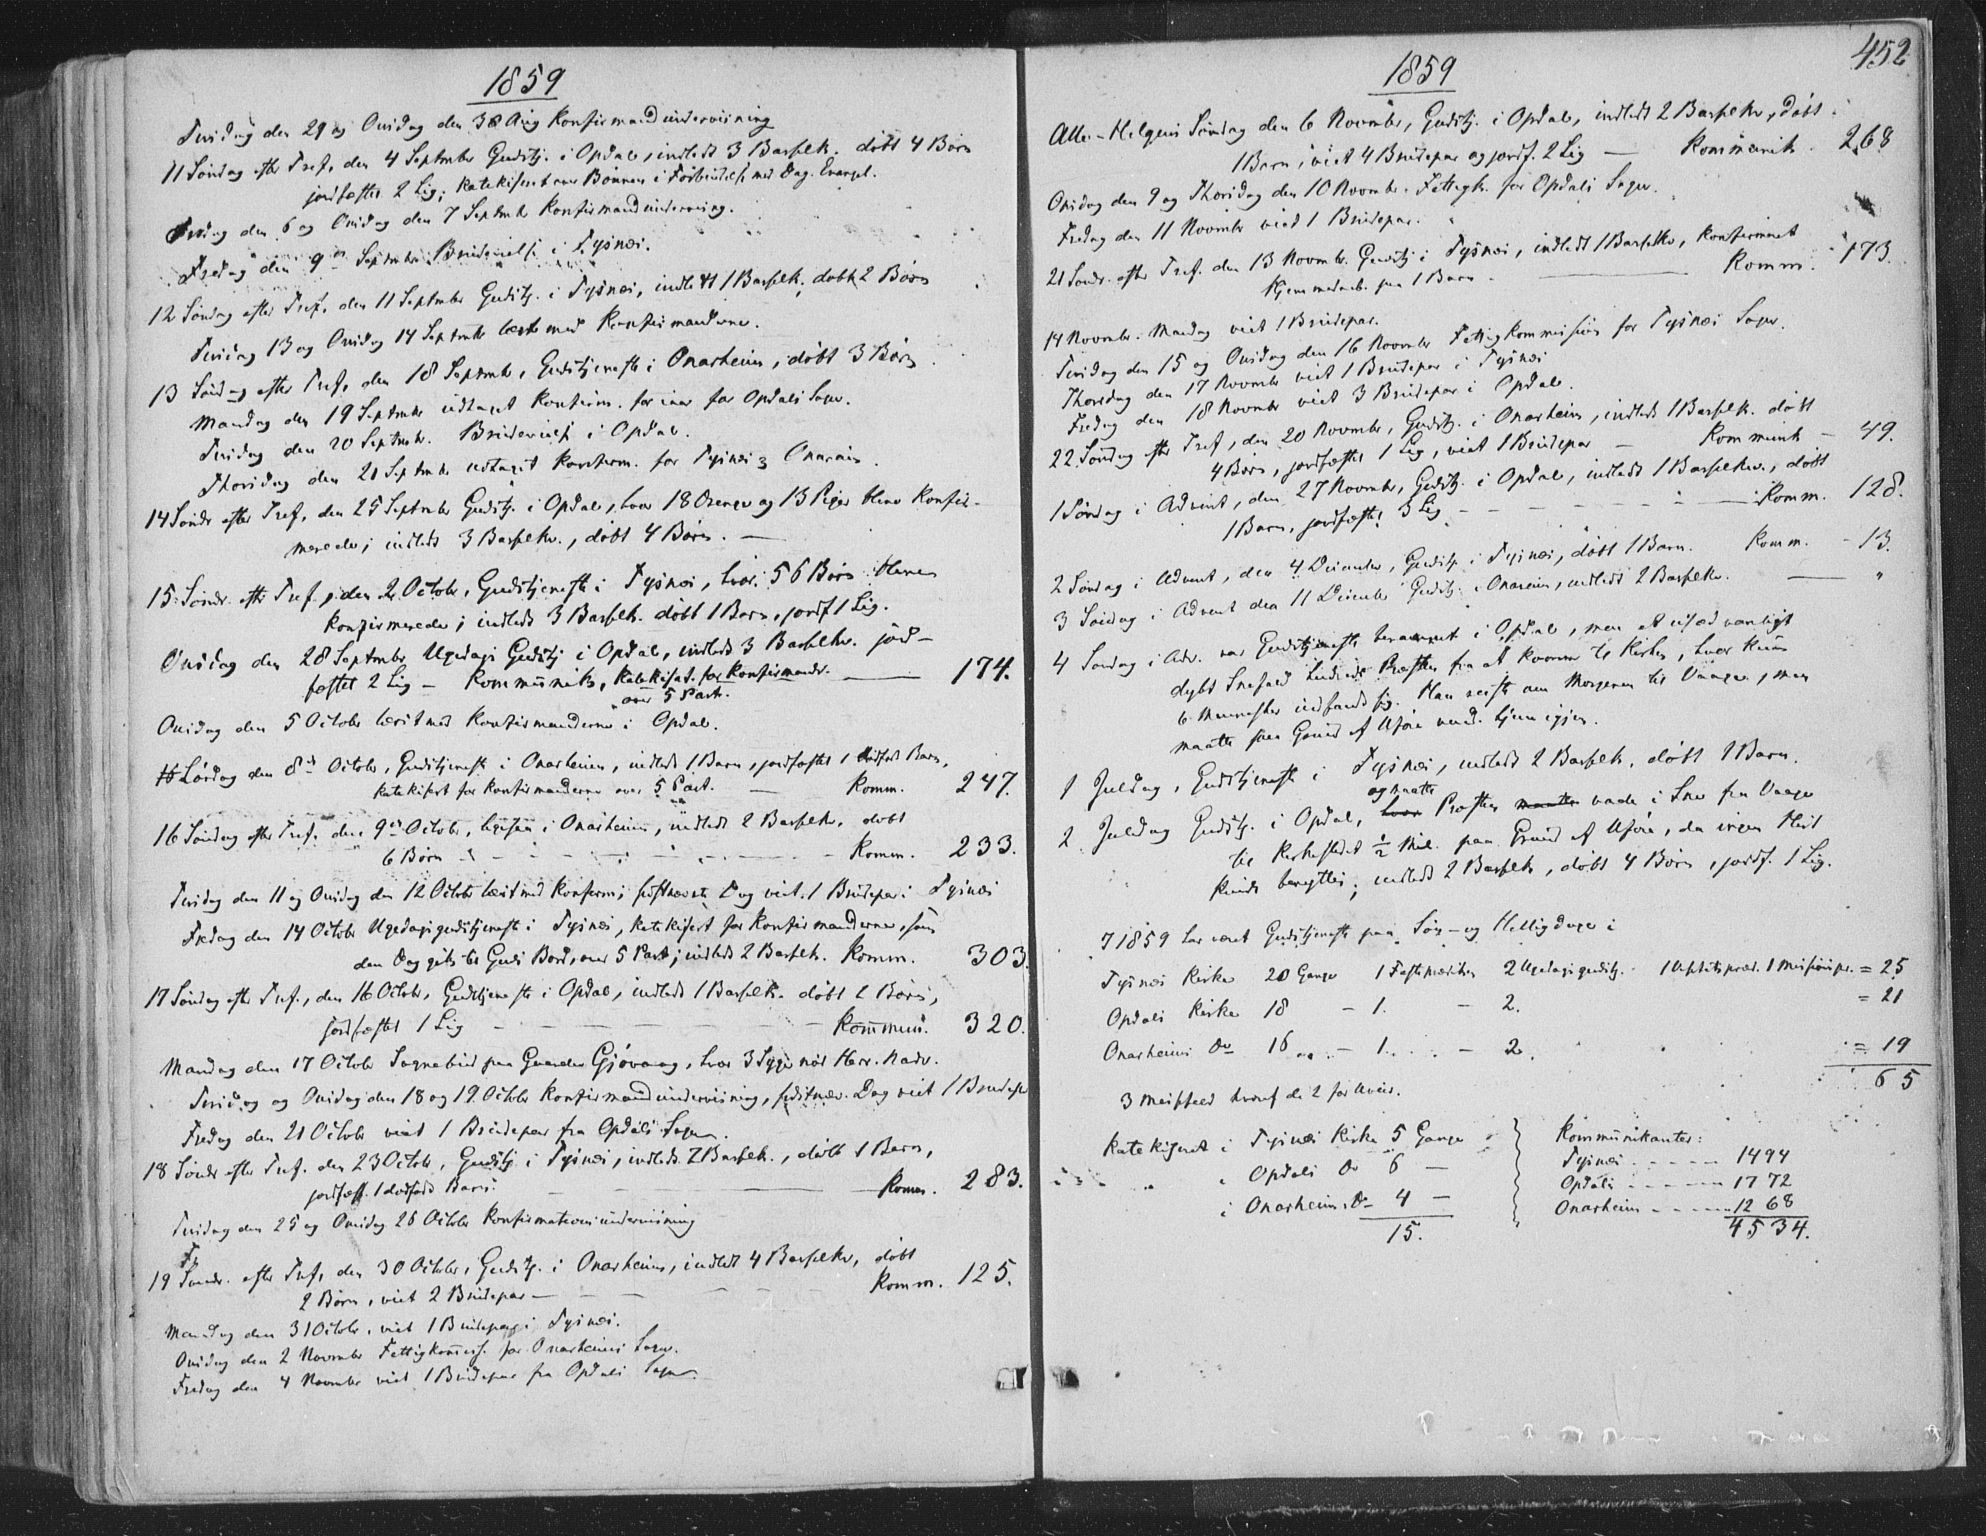 1859
Tirsdag den 29 og Onsdag den 30 Aug Konfirmandundervisning
11 Søndag efter Tref. den 4 September Gudstj. i Opdal, indledt 3 Barselk. døbt 4 Børn
jordfæstet 2 Lig; katekiseret over Bønnen i Forbindelse med Dag. Evangel.
Tirsdag den 6 og Onsdag den 7 Septembr Konfirmandundervisning.
Fredag den 9de Septembr Brudevielse i Tysnæs.
12 Søndag efter Tref. den 11 September Gudstj. i Tysnæs, indledt 1 Barselk. døbt 2 Børn
Tirsdag 13 og Onsdag 14 Septembr læst med Konfirmanderne.
13 Søndag efter Tref. den 18 Septembr, Gudstjeneste i Onarheim, døbt 3 Børn
Mandag den 19 Septembr udtaget Konfirm. for iaar for Opdals Sogn.
Tirsdag den 20 Septembr. Brudevielse i Opdal.
Thorsdag den 21 Septembr udtaget Konfirm. for Tysnæs og Onarheim.
14 Søndr efter Tref. den 25 September Gudstj. i Opdal, hvor 18 Drenge og 13 Piger bleve Konfir-
merede; indledt 3 Barselkv., døbt 4 Børn. —
15 Søndr. efter Tref. den 2 October, Gudstjeneste i Tysnæs, hvor 56 Børn bleve
Konfirmerede; indledt 3 Barselk. døbt 1 Barn, jordf. 1 Lig.
Onsdag den 28 September Ugedags Gudstj i Opdal, indledt 3 Barselkv. jord-
fæstet 2 Lig — Kommunik., katekisat. for Konfirmandr. — 174.
over 5 Part.
Onsdag den 5 October læst med Konfirmanderne i Opdal.
Lørdag den 8de October, Gudstjeneste i Onarheim, indledt 1 Barn, jordfæstet 1 dødfødt Barn,
katekiseret for Konfirmanderne over 5 Part. — Komm. 247.
16 Søndag efter Tref. den 9de October, ligesaa i Onarheim, indledt 2 Barselkv. døbt
6 Børn — Komm. 233.
Tirsdag den 11 og Onsdag den 12 October læst med Konfirm; sidstnævnte Dag viet 1 Brudepar i Tysnæs
Fredag den 14 October Ugedagsgudstjeneste i Tysnæs, katekiseret for Konfirmanderne, som
den Dag gik til Guds Bord, over 5 Part; indledt 2 Barselk. Komm. 303.
17 Søndag efter Tref., den 16 Octobr, Gudstjeneste i Opdal, indledt 1 Barselk. døbt 2 Børn,
jordfæstet 1 Lig — Kommun. 320.
Mandag den 17 October Sognebud paa Gaarden Gjøvaag, hvor 3 Syge nød Herr. Nadv.
Tirsdag og Onsdag den 18 og 19 October Konfirmandundervisning, sidstnæv. Dag viet 1 Brudepar
Fredag den 21 October viet 1 Brudepar fra Opdals Sogn.
18 Søndr efter Tref. den 23 Octobr, Gudstj. i Tysnæs, indledt 2 Barselk., døbt 1 Barn,
jordfæst. 1 dødfødt Barn. — Komm. 283.
Tirsdag den 25 og Onsdag 26 October Konfirmationsundervisning
19 Søndr. efter Tref, den 30 October, Gudstj. i Onarheim, indledt 4 Barselkv, døbt
2 Børn, viet 2 Brudepar — Komm. 125.
Mandag den 31 October, viet 1 Brudepar i Tysnæs.
Onsdag den 2 November Fattigkommiss. for Onarheims Sogn.
Fredag den 4 November viet 1 Brudepar fra Opdals Sogn.
1859
452
Alle-Helgens Søndag den 6 November, Gudstj. i Opdal, indledt 2 Barselkv, døbt
1 Barn, viet 4 Brudepar og jordf. 2 Lig — Kommunik. 268
Onsdag den 9 og Thorsdag den 10 Novembr. Fattigk. for Opdals Sogn.
Fredag den 11 November viet 1 Brudepar.
21 Søndr. efter Tref. den 13 Novembr. Gudstj. i Tysnæs, indledt 1 Barselkv, konfirmeret
Hjemmedaab. paa 1 Barn — Komm. 173.
14 Novembr. Mandag viet 1 Brudepar.
Tirsdag den 15 og Onsdag den 16 November Fattigkommission for Tysnæs Sogn.
Thorsdag den 17 November viet 1 Brudepar i Tysnæs
Fredag den 18 November viet 3 Brudepar i Opdal.
22 Søndag efter Tref, den 20 November, Gudstj. i Onarheim, indledt 1 Barselk. døbt
4 Børn, jordfæstet 1 Lig, viet 1 Brudepar — Kommunik — 49.
1 Søndag i Advent, den 27 November, Gudstj. i Opdal, indledt 1 Barselkv., døbt
1 Barn, jordfæstet 3 Lig — Komm. 128.
2 Søndag i Advent, den 4 December, Gudstj. i Tysnæs, døbt 1 Barn. Komm. — 13.
3 Søndag i Advent den 11 December Gudstj. i Onarheim, indledt 2 Barselkv. — "
4 Søndag i Adv. var Gudstjeneste berammet i Opdal, men et usædvanligt
dybt Snefald hindrede Præsten fra at komme til Kirken, hvor kun
6 Mennesker indfandt sig. Han reiste om Morgenen til Vaage, men
maatte paa Grund af Uføre vende hjem igjen.
1 Juledag, Gudstjeneste i Tysnæs, indledt 2 Barselk. døbt 1 Barn.
og maatte
2 Juledag Gudstj. i Opdal, hvor Præsten maatte vade i Sne fra Vaage
til Kirkestedet ½ Mil. paa Grund af Uføre, da ingen Hest
kunde benyttes; indledt 2 Barselk, døbt 4 Børn, jordf. 1 Lig.
I 1859 har været Gudstjeneste paa Søn- og Helligdage i
Tysnæs Kirke 20 Gange 1 Fasteprædiken 2 Ugedagsgudstj. 1 1 Missionspr. = 25
Opdals Kirke 18 — 1. — 2. = 21
Onarheims Do 16 — 1. — 2. = 19
65
3 Messefald hvoraf de 2 for Uveir.
Katekiseret i Tysnæs Kirke 5 Gange
" i Opdals Do 6 —
i Onarheims Do 4 —
15.
Kommunikanter:
Tysnæs — 1494
Opdals — 1772
Onarheim — 1268
4534.